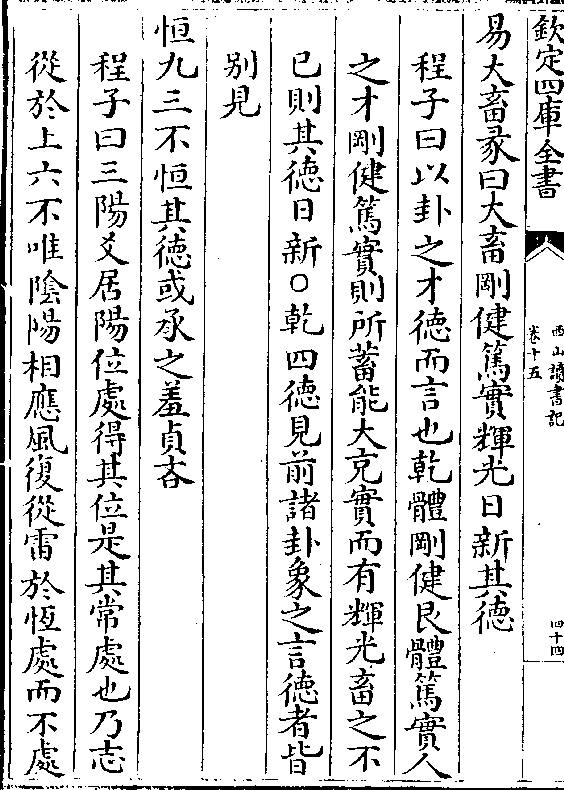 欽定四庫全書
西山讀書記
卷十五
四十四
易大畜彖曰大畜剛健篤實輝光日新其徳
程子曰以卦之才徳而言也乾體剛健艮體篤實人
之才剛健篤實則所蓄能大充實而有輝光畜之不
已則其徳日新○乾四徳見前諸卦象之言徳者皆
别見
恒九三不恒其徳或承之羞貞吝
程子曰三陽爻居陽位處得其位是其常處也乃志
從於上六不唯陰陽相應風復從雷於恆處而不處